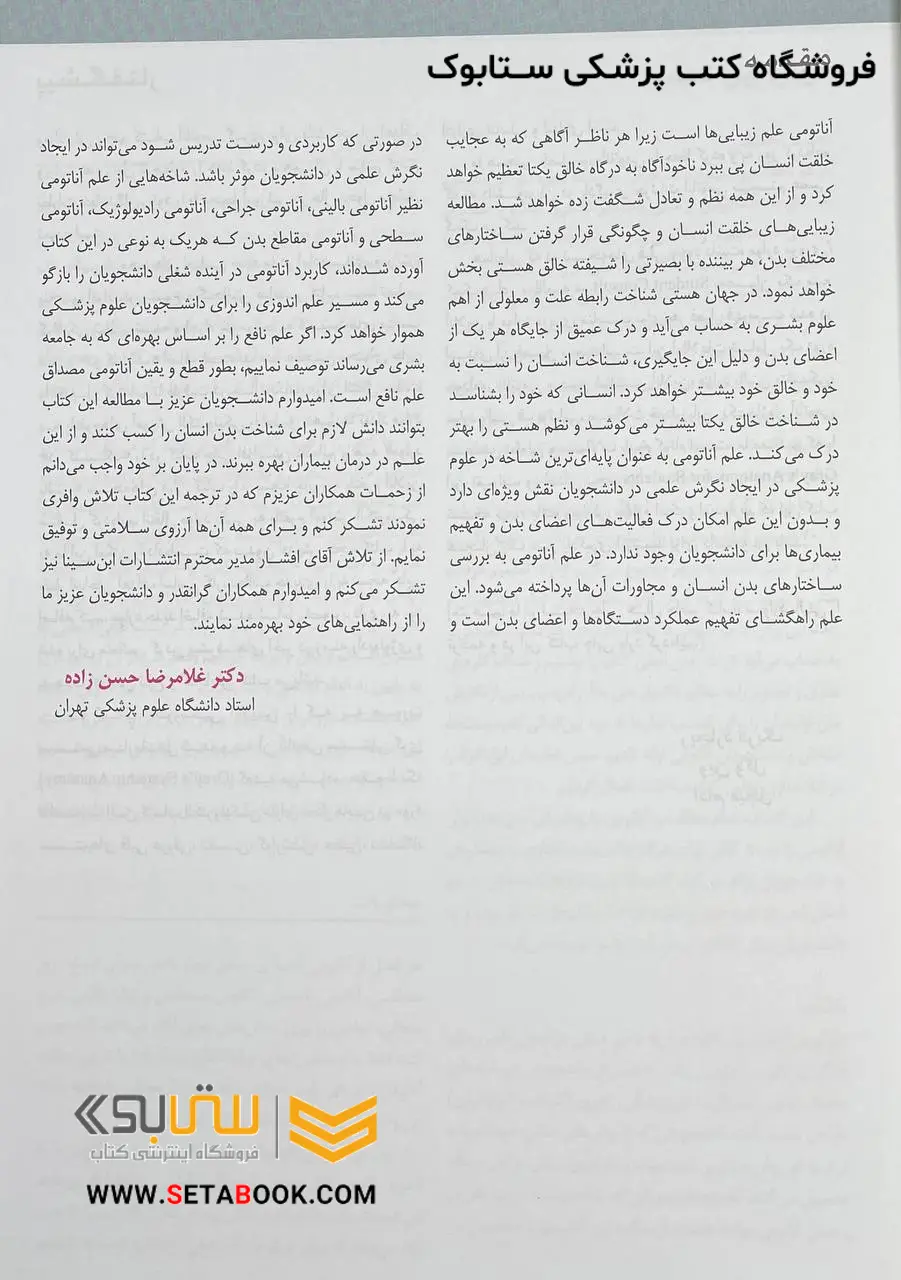 فروشگاه کتب پزشکی ستابوک
مقدمه
آناتومی علم زیبایی‌ها است زیرا هر ناظر آگاهی که به عجایب
خلقت انسان پی ببرد ناخودآگاه به درگاه خالق یکتا تعظیم خواهد
کرد و از این همه نظم و تعادل شگفت زده خواهد شد. مطالعه
زیبایی‌های خلقت انسان و چگونگی قرار گرفتن ساختارهای
مختلف بدن، هر بیننده با بصیرتی را شیفته خالق هستی بخش
خواهد نمود. در جهان هستی شناخت رابطه علت و معلولی از اهم
علوم بشری به حساب می‌آید و درک عمیق از جایگاه هر یک از
اعضای بدن و دلیل این جایگیری، شناخت انسان را نسبت به
خود و خالق خود بیشتر خواهد کرد. انسانی که خود را بشناسد
در شناخت خالق یکتا بیشتر می‌کوشد و نظم هستی را بهتر
درک می‌کند. علم آناتومی به عنوان پایه‌ای‌ترین شاخه در علوم
پزشکی در ایجاد نگرش علمی در دانشجویان نقش ویژه‌ای دارد
و بدون این علم امکان درک فعالیت‌های اعضای بدن و تفهیم
بیماری‌ها برای دانشجویان وجود ندارد. در علم آناتومی به بررسی
ساختارهای بدن انسان و مجاورات آن‌ها پرداخته می‌شود. این
علم راهگشای تفهیم عملکرد دستگاه‌ها و اعضای بدن است و
در صورتی که کاربردی و درست تدریس شود می‌تواند در ایجاد
نگرش علمی در دانشجویان موثر باشد. شاخه‌هایی از علم آناتومی
نظیر آناتومی بالینی، آناتومی جراحی، آناتومی رادیولوژیک، آناتومی
سطحی و آناتومی مقاطع بدن که هریک به نوعی در این کتاب
آورده شده‌اند، کاربرد آناتومی در آینده شغلی دانشجویان را بازگو
می‌کند و مسیر علم اندوزی را برای دانشجویان علوم پزشکی
هموار خواهد کرد. اگر علم نافع را بر اساس بهره‌ای که به جامعه
بشری می‌رساند توصیف نماییم، بطور قطع و یقین آناتومی مصداق
علم نافع است. امیدوارم دانشجویان عزیز با مطالعه این کتاب
بتوانند دانش لازم برای شناخت بدن انسان را کسب کنند و از این
علم در درمان بیماران بهره ببرند. در پایان بر خود واجب می‌دانم
از زحمات همکاران عزیزم که در ترجمه این کتاب تلاش وافری
نمودند تشکر کنم و برای همه آن‌ها آرزوی سلامتی و توفیق
نمایم. از تلاش آقای افشار مدیر محترم انتشارات ابن‌سینا نیز
تشکر می‌کنم و امیدوارم همکاران گرانقدر و دانشجویان عزیز ما
را از راهنمایی‌های خود بهره‌مند نمایند.
دکتر غلامرضا حسن زاده
استاد دانشگاه علوم پزشکی تهران
ستابوک
فروشگاه اینترنتی کتاب
WWW.SETABOOK.COM